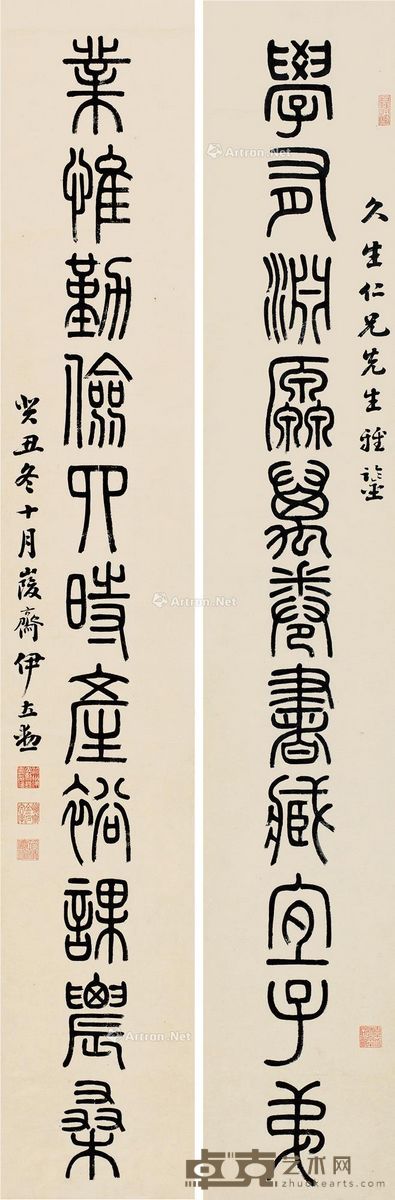 久生仁兄先生雅鑒
學有淵源萬卷書藏宜子弟
業惟勤儉四時產裕課農桑
癸丑冬十月峻齋伊立勳
Artron.Net
Artron.Net
Artron.Net
Artron.Net
卓克艺术网
www.zhuokearts.com